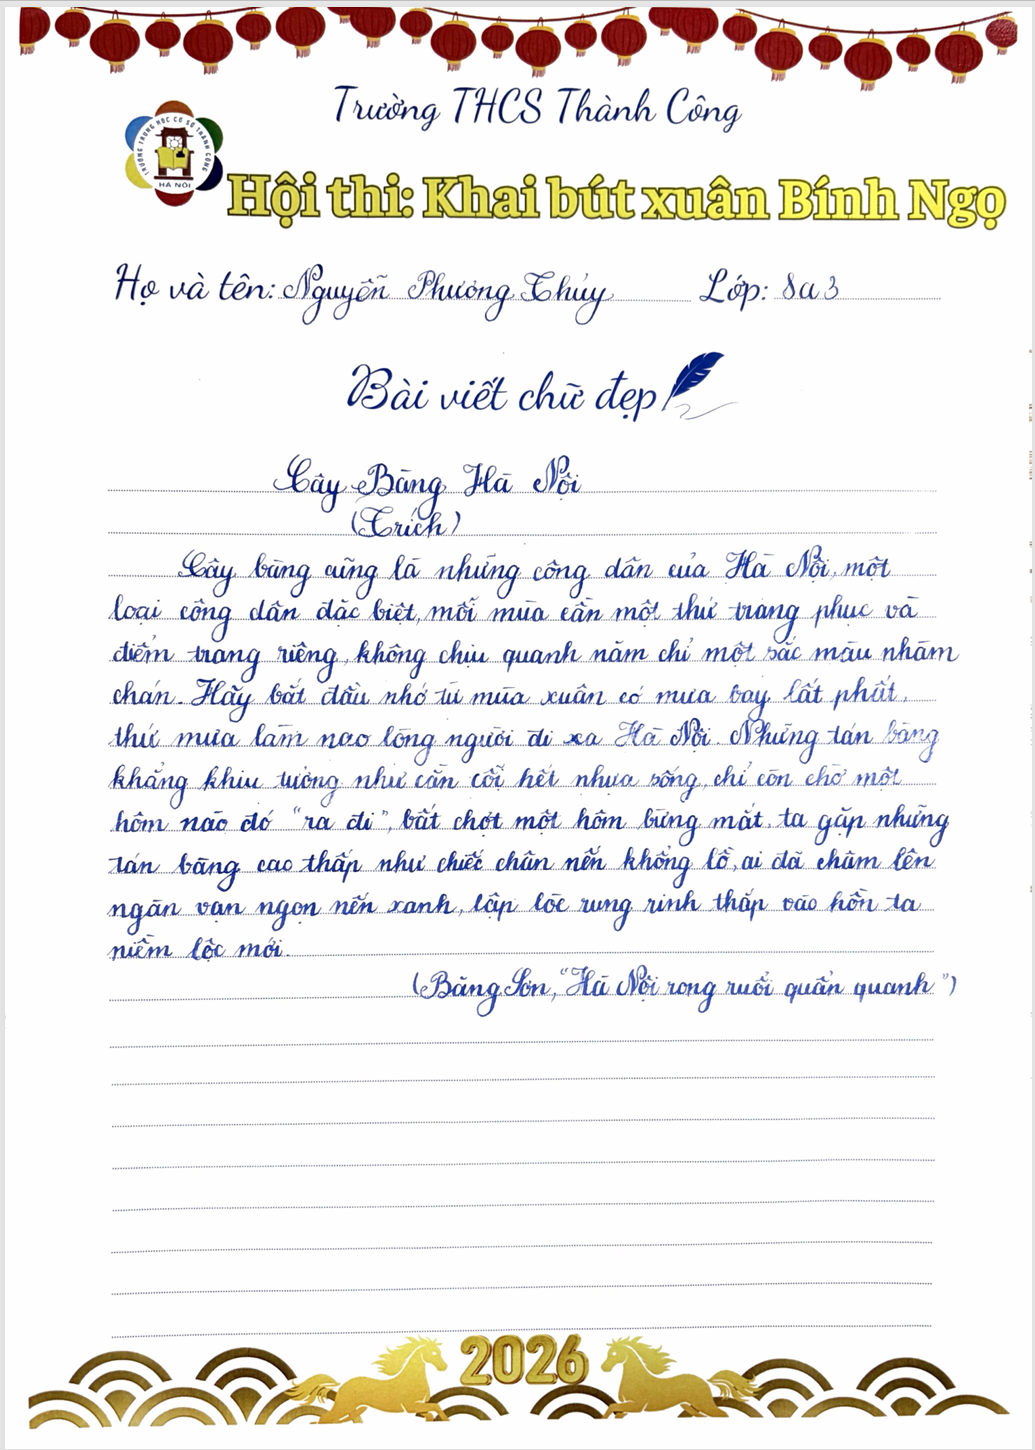 Trường THCS Thành Công
TRƯỜNG TRUNG HỌC CƠ SỞ THÀNH CÔNG
HÀ NỘI
Hội thi: Khai bút xuân Bính Ngọ
Họ và tên: Nguyễn Phương Thủy Lớp: 8a3
Bài viết chữ đẹp
Cây Bàng Hà Nội
(Trích)
Cây bàng cũng là những công dân của Hà Nội, một
loại công dân đặc biệt, mỗi mùa cần một thứ trang phục và
điểm trang riêng, không chịu quanh năm chỉ một sắc màu nhàm
chán. Hãy bắt đầu nhớ từ mùa xuân có mưa bay lất phất,
thứ mưa làm nao lòng người đi xa Hà Nội. Những tán bàng
khẳng khiu tưởng như cằn cỗi hết nhựa sống, chỉ còn chờ một
hôm nào đó "ra đi", bất chợt một hôm bừng mắt, ta gặp những
tán bàng cao thấp như chiếc chân nến khổng lồ, ai đã châm lên
ngàn vạn ngọn nến xanh, lập lòe rung rinh thắp vào hồn ta
niềm lộc mới.
(Băng Sơn, "Hà Nội rong ruổi quẩn quanh")
2026